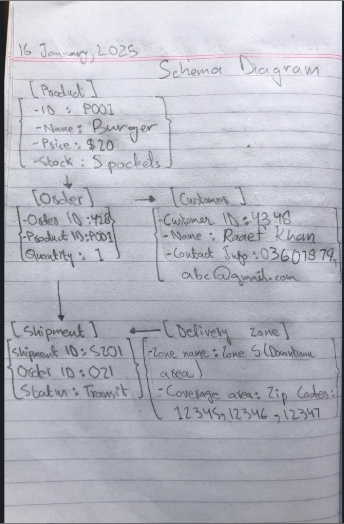 16 January, 2025
Schema Diagram
[Product]
-ID : P001
-Name : Burger
-Price : $20
-Stock : 5 packets
[Order]
-Order ID : 428
-Product ID : P001
Quantity : 1
[Customer]
-Customer ID : 4348
-Name : Raaef Khan
-Contact Info :
abc@gmail.com
[Shipment]
Shipment ID : S201
Order ID : 021
Status : Transit
[Delivery Zone]
-Zone name : Zone 5 (Downtown
area)
-Coverage area : Zip Codes :
12345, 12346, 12347